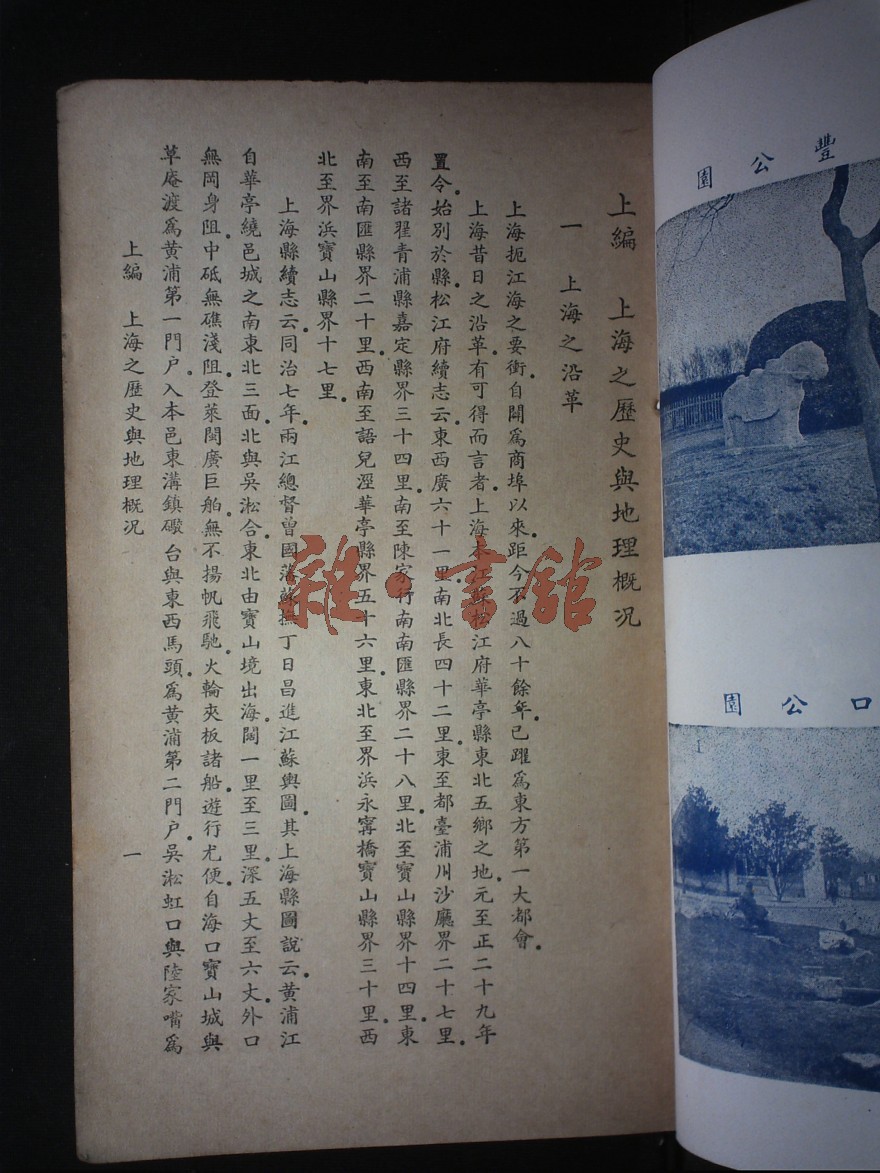 豐公園
口公園
上編　上海之歷史與地理概况
一　上海之沿革
上海扼江海之要衝。自闢爲商埠以來。距今不過八十餘年。已躍爲東方第一大都會。
上海昔日之沿革。有可得而言者。上海本江蘇松江府華亭縣東北五鄉之地。元至正二十九年
置令。始別於縣。松江府續志云。東西廣六十一里。南北長四十二里。東至都臺浦川沙廳界二十七里。
西至諸翟青浦縣嘉定縣界三十四里。南至陳家行南南匯縣界二十八里。北至寶山縣界十四里。東
南至南匯縣界二十里。西南至語兒涇華亭縣界五十六里。東北至界浜永寧橋寶山縣界三十里。西
北至界浜寶山縣界十七里。
上海縣續志云。同治七年。兩江總督曾國藩蘇撫丁日昌進江蘇輿圖。其上海縣圖說云。黄浦江
自華亭繞邑城之南東北三面。北與吳淞合。東北由寶山境出海。闊一里至三里。深五丈至六丈。外口
無岡身阻。中砥無礁淺阻。登萊閩廣巨舶。無不揚帆飛馳。火輪夾板諸船。遊行尤便。自海口寶山城與
草庵渡爲黄浦第一門户。入本邑東溝鎮礮台與東西馬頭。爲黄浦第二門户。吳淞虹口與陸家嘴爲
上編　上海之歷史與地理概况
一
雜·書館